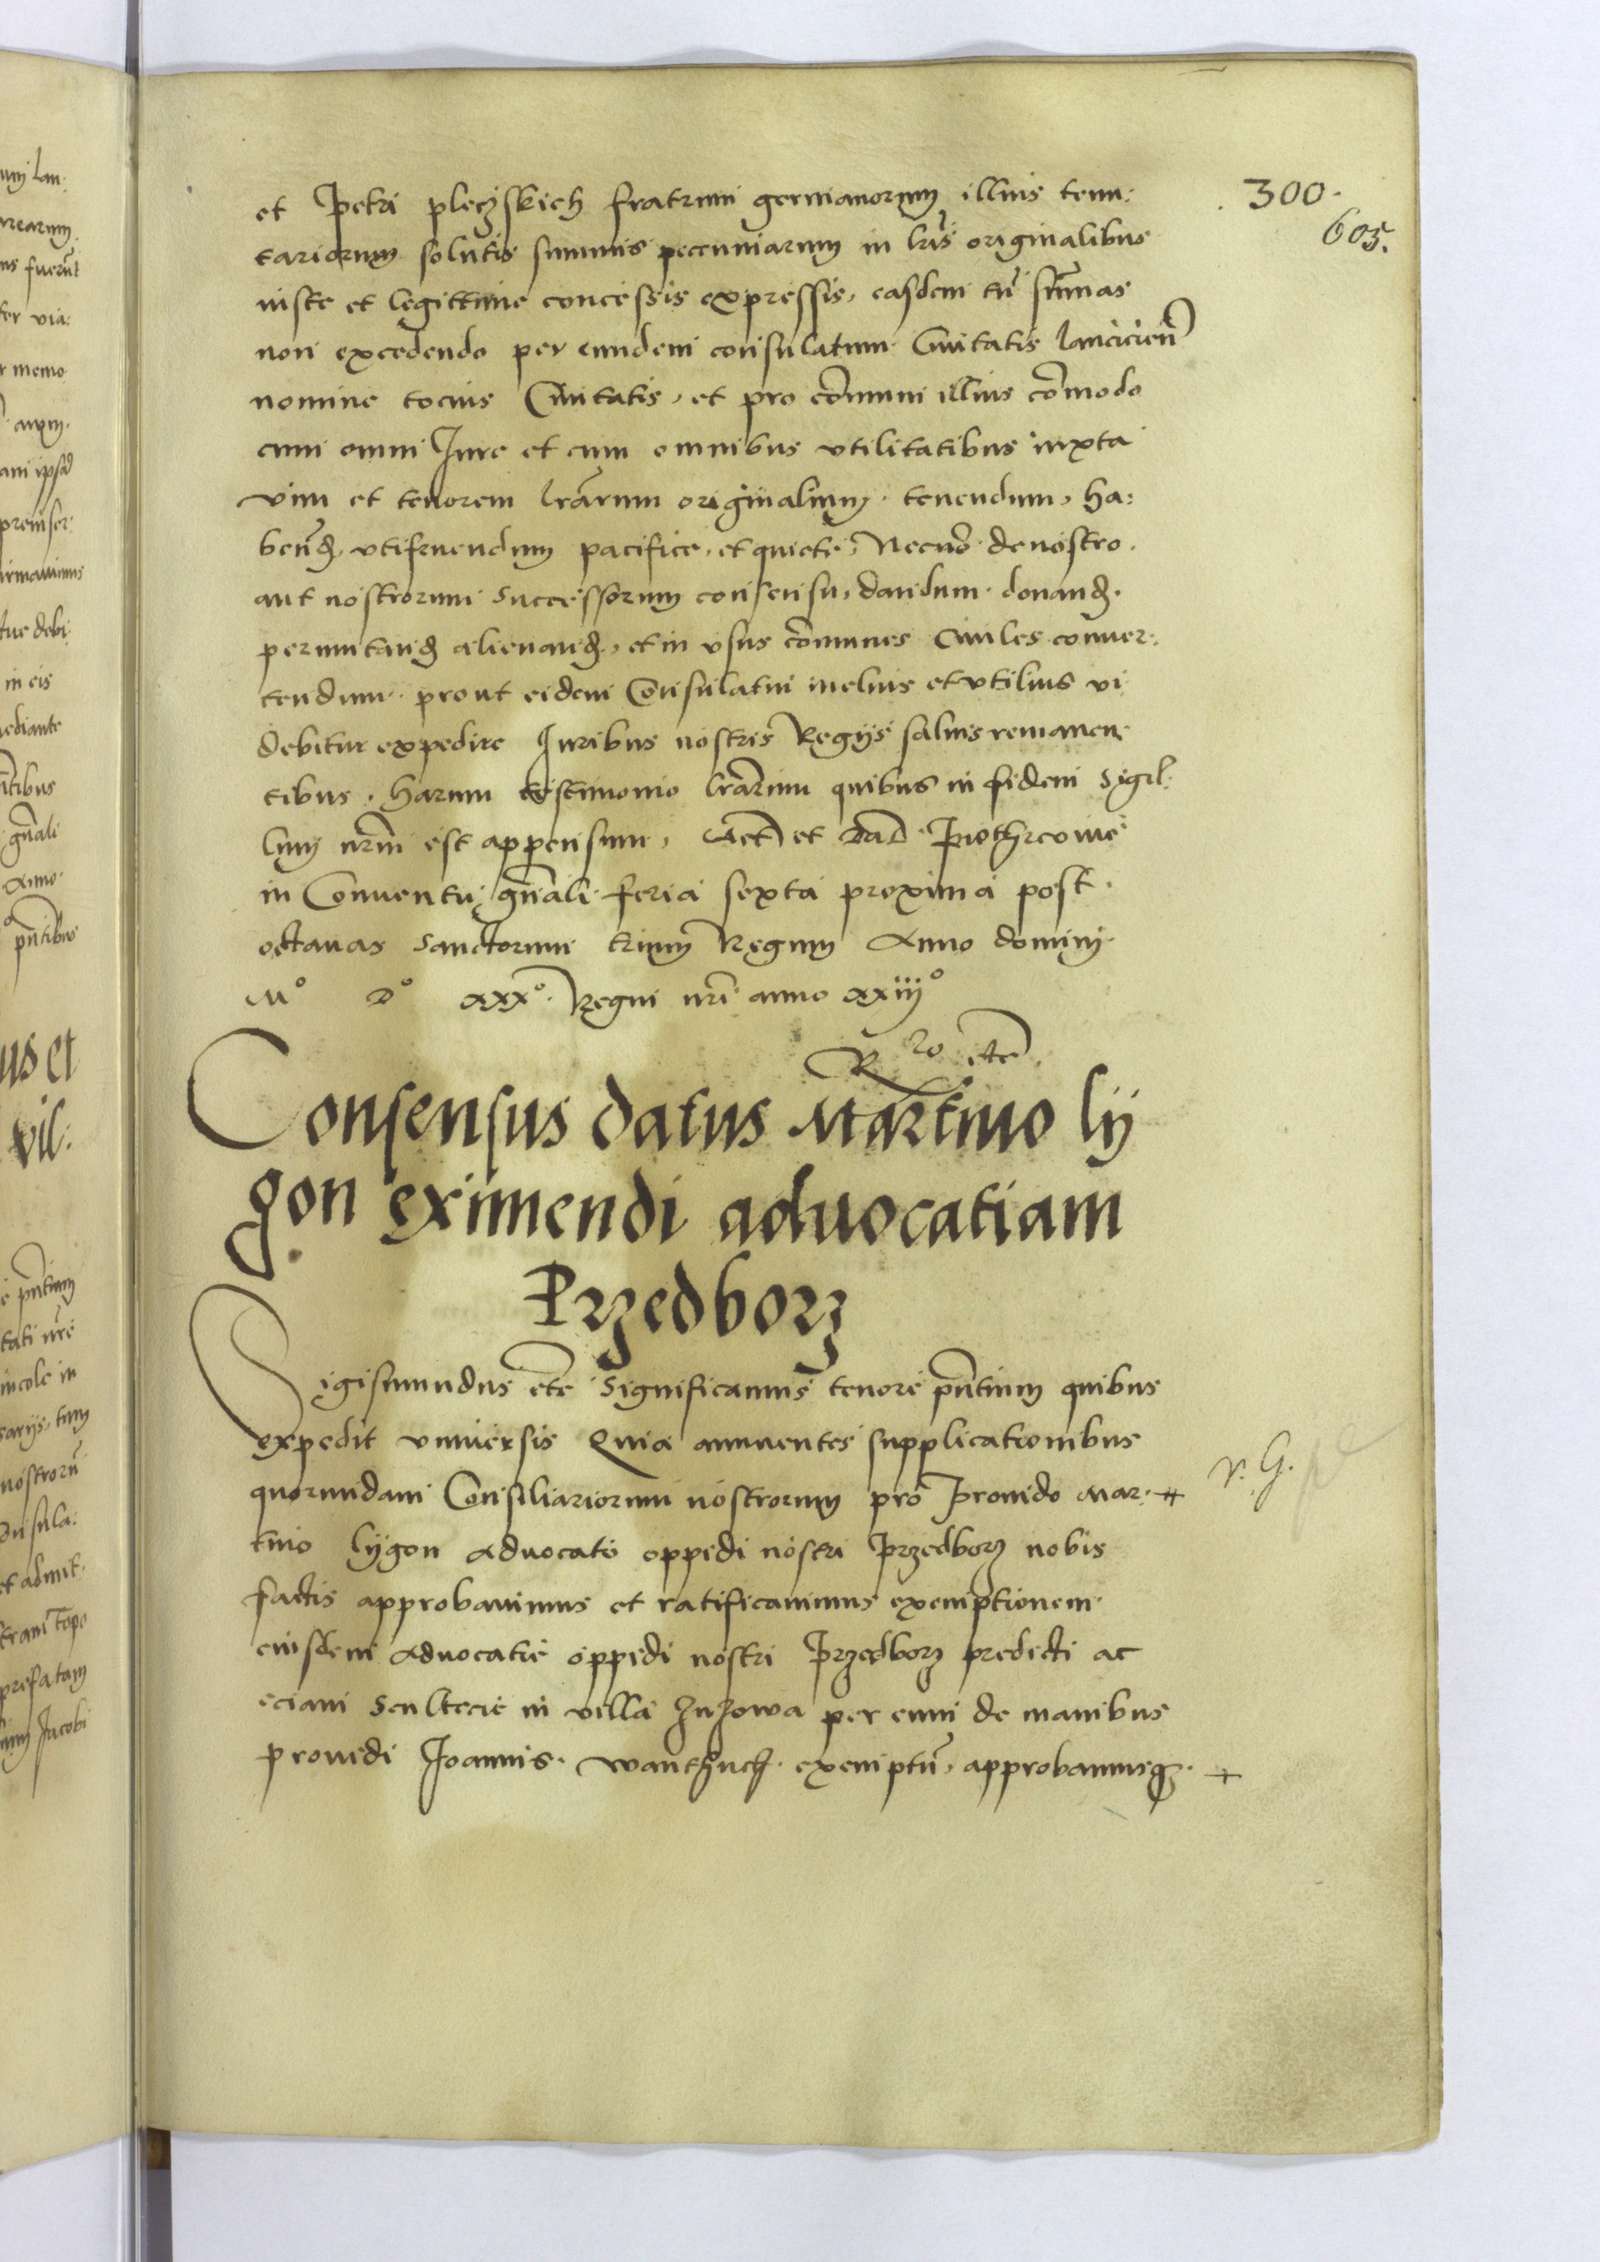 300.
605.
et Petri pleczskich fratrum germanorum illius tenu:
tariorum solutis summis pecuniarum in lris originalibus
iuste et legittime concessis expressis, easdem tn summas
non excedendo per eundem consulatum Civitatis lancicien
nomine tocius Civitatis, et pro comuni illius comodo
cum omni Jure et cum omnibus vtilitatibus iuxta
vim et tenorem lrarum originalium tenendum, ha:
bend, vtifruendum pacifice, et quiete, Necno de nostro
aut nostrorum successorum consensu, dandum donand
permutand alienand, et in vsus comunes Civiles conver:
tendum prout eidem Consulatui melius et vtilius vi
debitur expedire Juribus nostris Regijs salvis remanen
tibus, harum testimonio lrarum quibus in fidem Sigil:
lum nrm est appensum, Act et Dat Piothrcovie
in Conventu gnali feria sexta proxima post
octavas Sanctorum trium Regum Anno domini
Mº Dº xxxº Regni nri anno xxiiijº
Rº etc
Consensus datus Martino ly
gon eximendi aduocatiam
Przedborz
Sigismundus etc Significamus tenore pntium quibus
expedit vniversis Quia annuentes supplicationibus
quorundam Consiliariorum nostrorum pro Provido Mar:
tino lygon Aduocato oppidi nostri Przedborz nobis
factis approbavimus et ratificavimus exemptionem
eiusdem Aduocatie oppidi nostri Przedborz predicti ac
eciam Scultecie in villa Zuzowa per eum de manibus
providi Joannis exemptu, approbamusq
v. G.